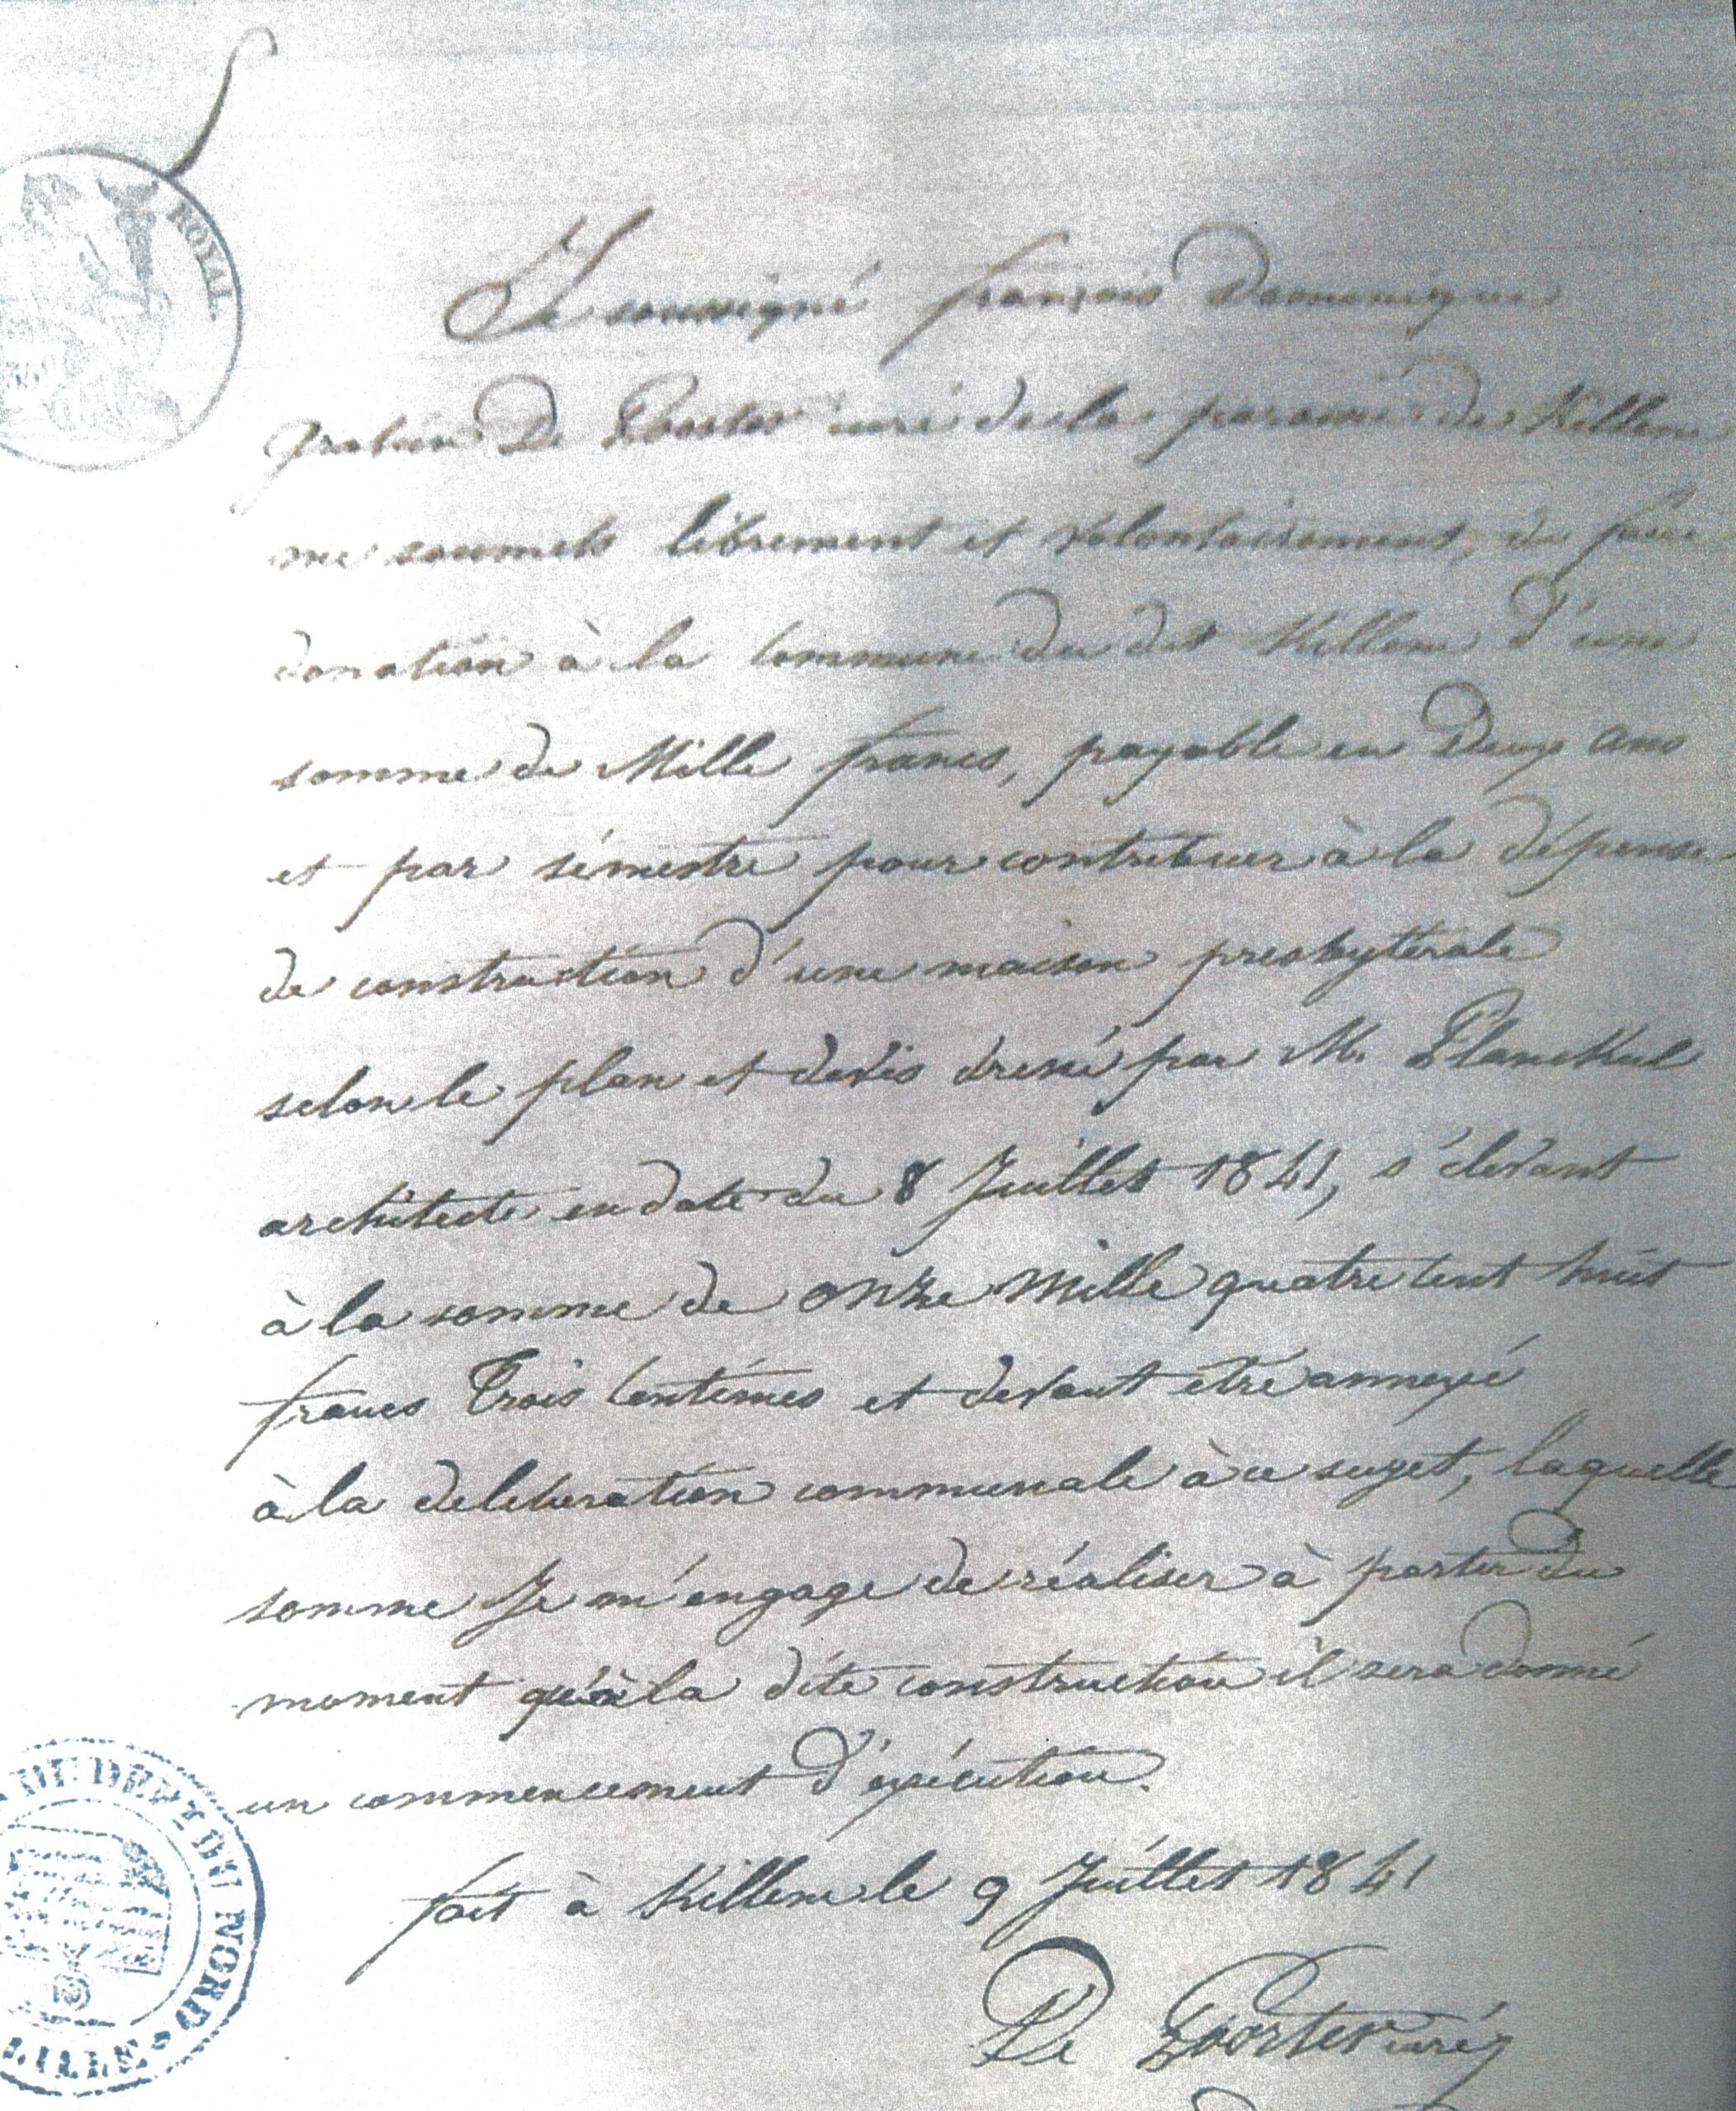 ROYAL
Je soussigné françois Dominique
gratien De Poorter curé de la paroisse de Killem
me soumets librement et volontairement, de faire
donation à la Commune du dit Killem d'une
somme de Mille francs, payable en Deux ans
et par sémestre pour contribuer à la dépense
de construction d'une maison presbytérale
selon le plan et devis dressé par M.
architecte, en date du 8 Juillet 1841, s'élevant
à la somme de onze Mille quatre Cent huit
francs Trois Centimes et devant etre annexé
à la deliberation communale à ce sujet, laquelle
somme Je m'engage de réaliser à partir du
moment qu'à la dite construction il sera donné
un commencement d'éxécution.
fait à Killem le 9 Juillet 1841
De Poorter curé
DU DEPT DU NORD LILLE